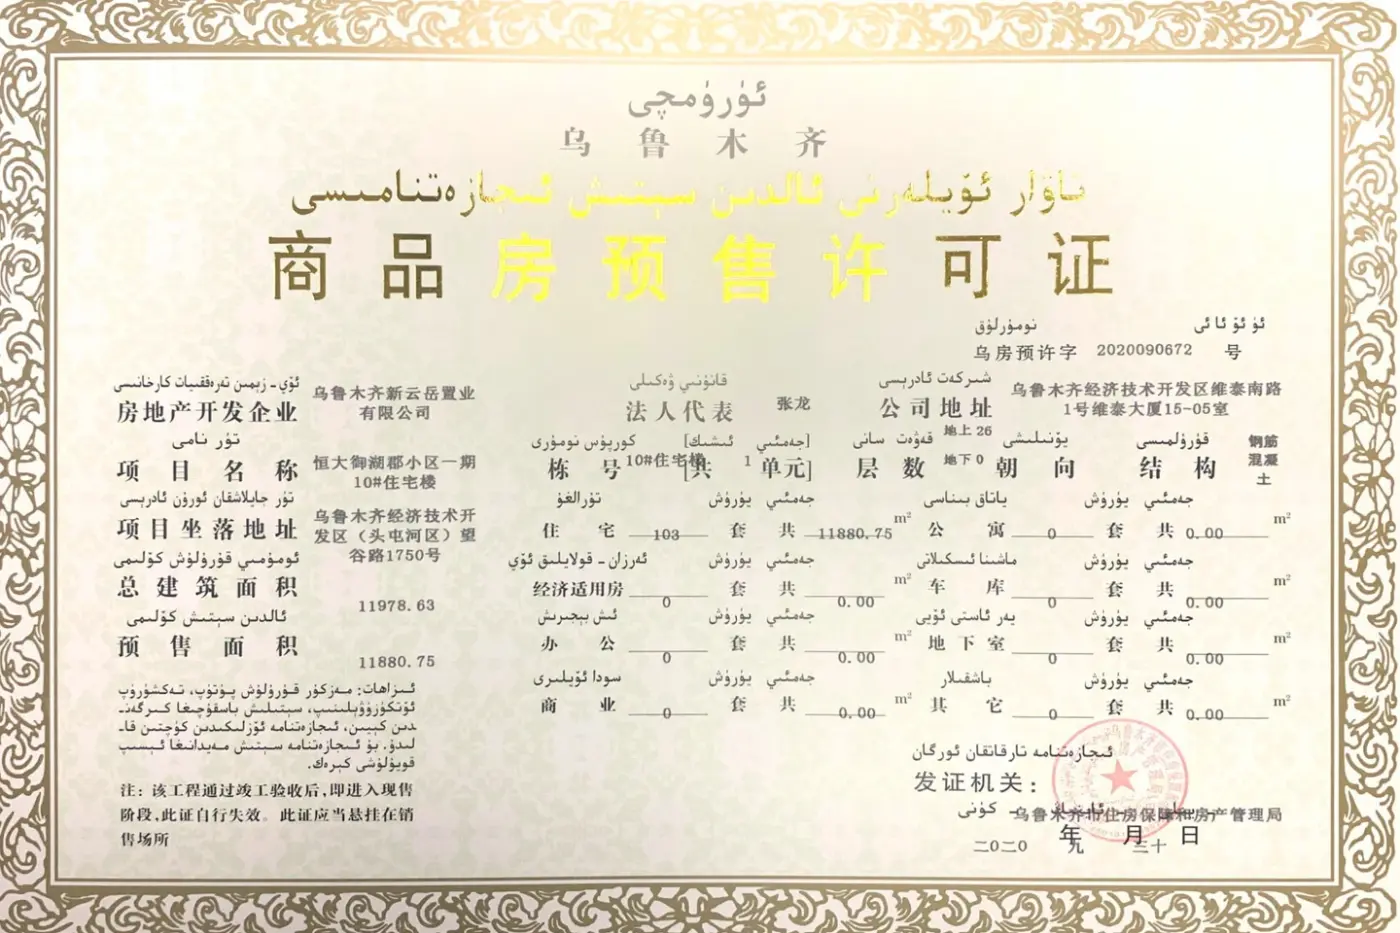 ئۈرۈمچى
乌鲁木齐
تاۋار ئۆيلەرنى ئالدىن سېتىش ئىجازەتنامىسى
商品房预售许可证
ئۈ ئۆ ئا ئى نومۇرلۇق
乌房预许字 2020090672 号
ئۆي-زېمىن تەرەققىيات كارخانىسى
房地产开发企业 乌鲁木齐新云岳置业有限公司
قانۇنىي ۋەكىلى
法人代表 张龙
شىركەت ئادرېسى
公司地址 乌鲁木齐经济技术开发区维泰南路1号维泰大厦15-05室
تۈر نامى
项目名称 恒大御湖郡小区一期10#住宅楼
كورپۇس نومۇرى [جەمئىي ئىشىك]
栋号 10#住宅楼 [共 1 单元]
قەۋەت سانى
层数 地上 26 地下 0
يۆنىلىشى
朝向
قۇرۇلمىسى
结构 钢筋混凝土
تۈر جايلاشقان ئورۇن ئادرېسى
项目坐落地址 乌鲁木齐经济技术开发区（头屯河区）望谷路1750号
تۇرالغۇ جەمئىي يۈرۈش
住宅 103 套 共 11880.75 m²
ياتاق بىناسى جەمئىي يۈرۈش
公寓 0 套 共 0.00 m²
ئومۇمىي قۇرۇلۇش كۆلىمى
总建筑面积 11978.63
ئەرزان-قولايلىق ئۆي جەمئىي يۈرۈش
经济适用房 0 套 共 0.00 m²
ماشىنا ئىسكىلاتى جەمئىي يۈرۈش
车库 0 套 共 0.00 m²
ئالدىن سېتىش كۆلىمى
预售面积 11880.75
ئىش بېجىرىش جەمئىي يۈرۈش
办公 0 套 共 0.00 m²
يەر ئاستى ئۆيى جەمئىي يۈرۈش
地下室 0 套 共 0.00 m²
سودا ئۆيلىرى جەمئىي يۈرۈش
商业 0 套 共 0.00 m²
باشقىلار جەمئىي يۈرۈش
其它 0 套 共 0.00 m²
ئىزاھات: مەزكۇر قۇرۇلۇش پۈتۈپ، تەكشۈرۈپ
ئۆتكۈزۈۋېلىنىپ، سېتىلىش باسقۇچىغا كىرگەن-
دىن كېيىن، ئىجازەتنامە ئۆزلىكىدىن كۈچتىن قا-
لىدۇ. بۇ ئىجازەتنامە سېتىش مەيدانىغا ئېسىپ
قويۇلۇشى كېرەك.
注：该工程通过竣工验收后，即进入现售
阶段，此证自行失效。此证应当悬挂在销
售场所
ئىجازەتنامە تارقاتقان ئورگان
发证机关：
乌鲁木齐市住房保障和房产管理局
二〇二〇 年 九 月 三十 日